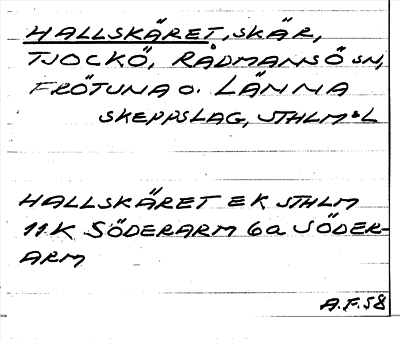 HALLSKÄRET, SKÄR,
TJOCKÖ, RÅDMANSÖ SN,
FRÖTUNA O. LÄNNA
SKEPPSLAG, STHLMS L
HALLSKÄRET EK STHLM
11K SÖDERARM 6a SÖDER-
ARM
A.F. 58